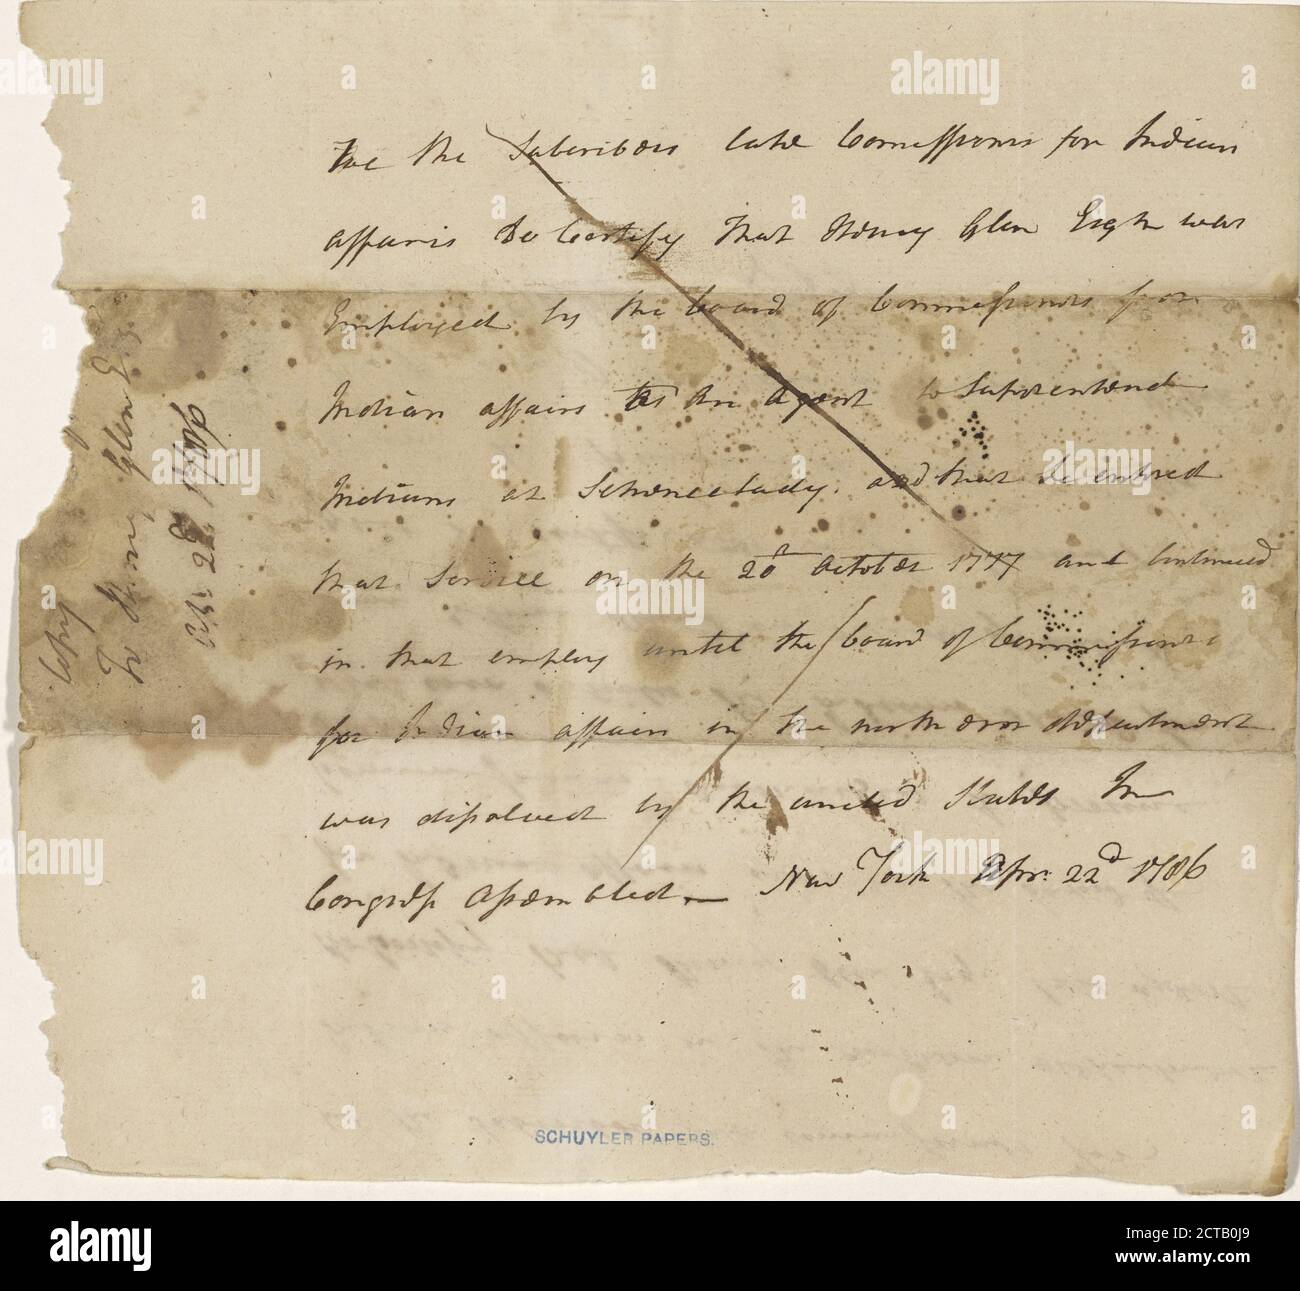 We the Subscribers late Commissioners for Indian
affairs Do Certify that Henry Glen Esqr was
Employed by the board of Commissioners for
Indian affairs as An Agent to Superintend
Indians at Schenectady, and that he entred
that Service on the 20th October 1777 and Continued
in that employ until the board of Commissioners
for Indian affairs in the northeren department
was disolved by the united States In
Congress Assembled — New York Apr: 22d 1786
Copy
To Henry Glen Esqr
Apr: 22d 1786
SCHUYLER PAPERS.
alamy
Image ID: 2CTB0J9
www.alamy.com